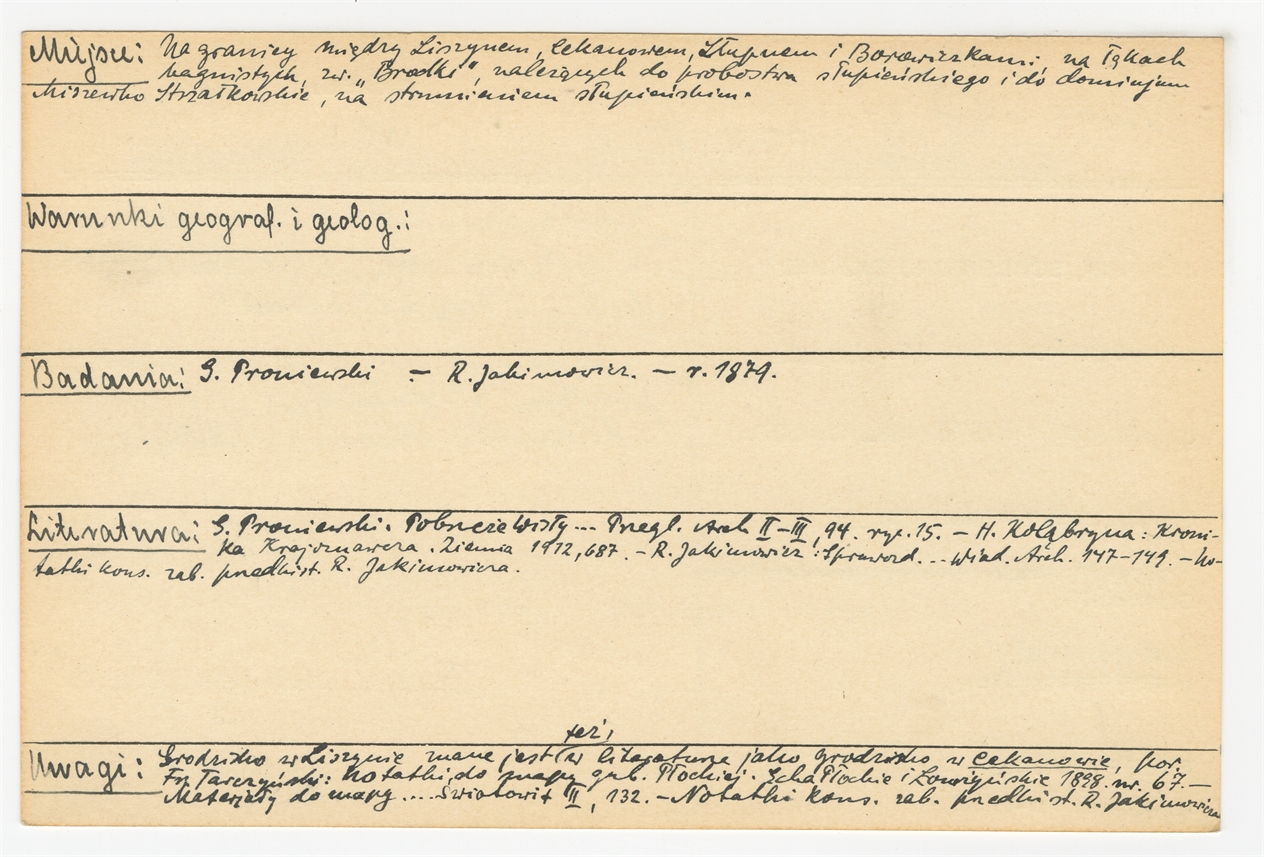 Miejsce: Na granicy między Liszynem, Cekanowem, Słupnem i Borowiczkami na łąkach
bagnistych, zw. „Brodki", należących do probostwa słupieńskiego i do dominjum
Miszewko Strzałkowskie, na strumieniem słupieńskim.
Warunki geograf. i geolog.:
Badania: G. Proniewski – R. Jakimowicz. – r. 1879.
Literatura: G. Proniewski. Pobrzeże Wisły... Przegl. Arch II–III, 94. ryc. 15. – H. Kołąbryna: Kroni-
ka Krajoznawcza. Ziemia 1912, 687. – R. Jakimowicz: Sprawozd... Wiad. Arch. 147–149. – No-
tatki kons. zab. przedhist. R. Jakimowicza.
też,
Uwagi: Grodzisko w Liszynie znane jest w literaturze jako grodzisko w Cekanowie, por.
Fr. Tarczyński: Notatki do mapy gub. Płockiej. Echa Płockie i Łomżyńskie 1898. nr. 67. –
Materjały do mapy .... Światowit II, 132. – Notatki kons. zab. przedhist. R. Jakimowicza